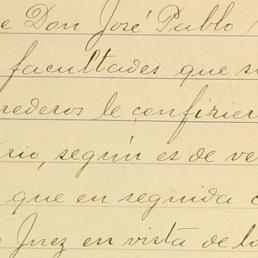 e Don José Pablo
facultades que s
rederos le confirier
rio, según es de ve
que en seguida c
Juez en vista de lo